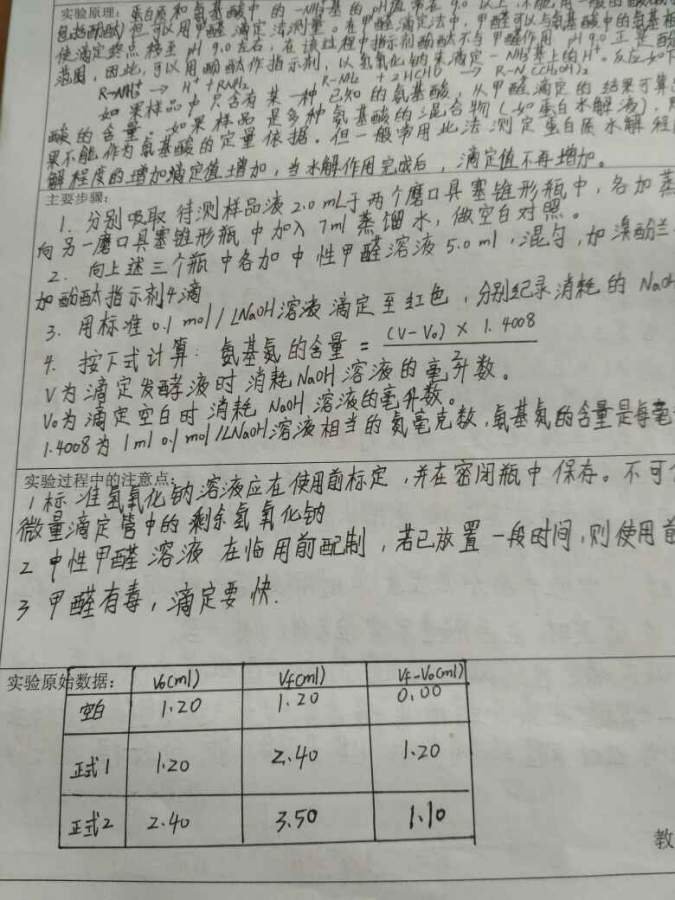 实验原理: 蛋白质和氨基酸中的-NH₃⁺基的pH值常在9.0以上,不能用一般的酸碱
但可以用甲醛滴定法测量。在甲醛滴定法中,甲醛可以与氨基酸中的氨基相
使滴定终点移至pH 9.0左右,在该过程中指示剂酚酞不与甲醛作用 pH 9.0正是酚
范围,因此,可以用酚酞作指示剂,以氢氧化钠来滴定-NH₃⁺基上的H⁺。反应如下
R-NH₃⁺ → H⁺+RNH₂ R-NH₂ + 2HCHO → R-N(CH₂OH)₂
如果样品中只含有某一种已知的氨基酸,从甲醛滴定的结果可算
酸的含量。如果样品是多种氨基酸的混合物(如蛋白水解液),
果不能作为氨基酸的定量依据。但一般常用此法测定蛋白质水解程
解程度的增加滴定值增加,当水解作用完成后,滴定值不再增加。
主要步骤:
1. 分别吸取待测样品液2.0mL于两个磨口具塞锥形瓶中,各加蒸
向另一磨口具塞锥形瓶中加入7ml蒸馏水,做空白对照。
2. 向上述三个瓶中各加中性甲醛溶液5.0ml,混匀,加溴酚兰
加酚酞指示剂4滴
3. 用标准0.1mol/LNaOH溶液滴定至红色,分别纪录消耗的NaOH
4. 按下式计算: 氨基氮的含量 = (V-V₀) × 1.4008 / 2
V为滴定发酵液时消耗NaOH溶液的毫升数。
V₀为滴定空白时消耗NaOH溶液的毫升数。
1.4008为1ml 0.1mol/LNaOH溶液相当的氮毫克数,氨基氮的含量是每毫
实验过程中的注意点:
1 标准氢氧化钠溶液应在使用前标定,并在密闭瓶中保存。不可
微量滴定管中的剩余氢氧化钠
2 中性甲醛溶液在临用前配制,若已放置一段时间,则使用前
3 甲醛有毒,滴定要快.
实验原始数据: V₀(ml) Vf(ml) Vf-V₀(ml)
空白 1.20 1.20 0.00
正式1 1.20 2.40 1.20
正式2 2.40 3.50 1.10
教